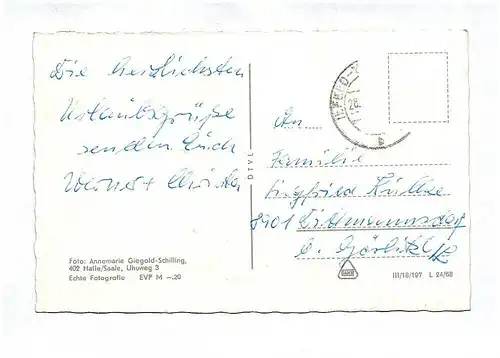 Die herzlichsten
Urlaubsgrüße
senden Euch
Werner + Christa
Foto: Annemarie Giegold-Schilling,
402 Halle/Saale, Uhuweg 3
Echte Fotografie EVP M –.20
DTVL
28.
An
Familie
Siegfried
8901 Dittmannsdorf
b. Görlitz
III/18/197 L 24/68